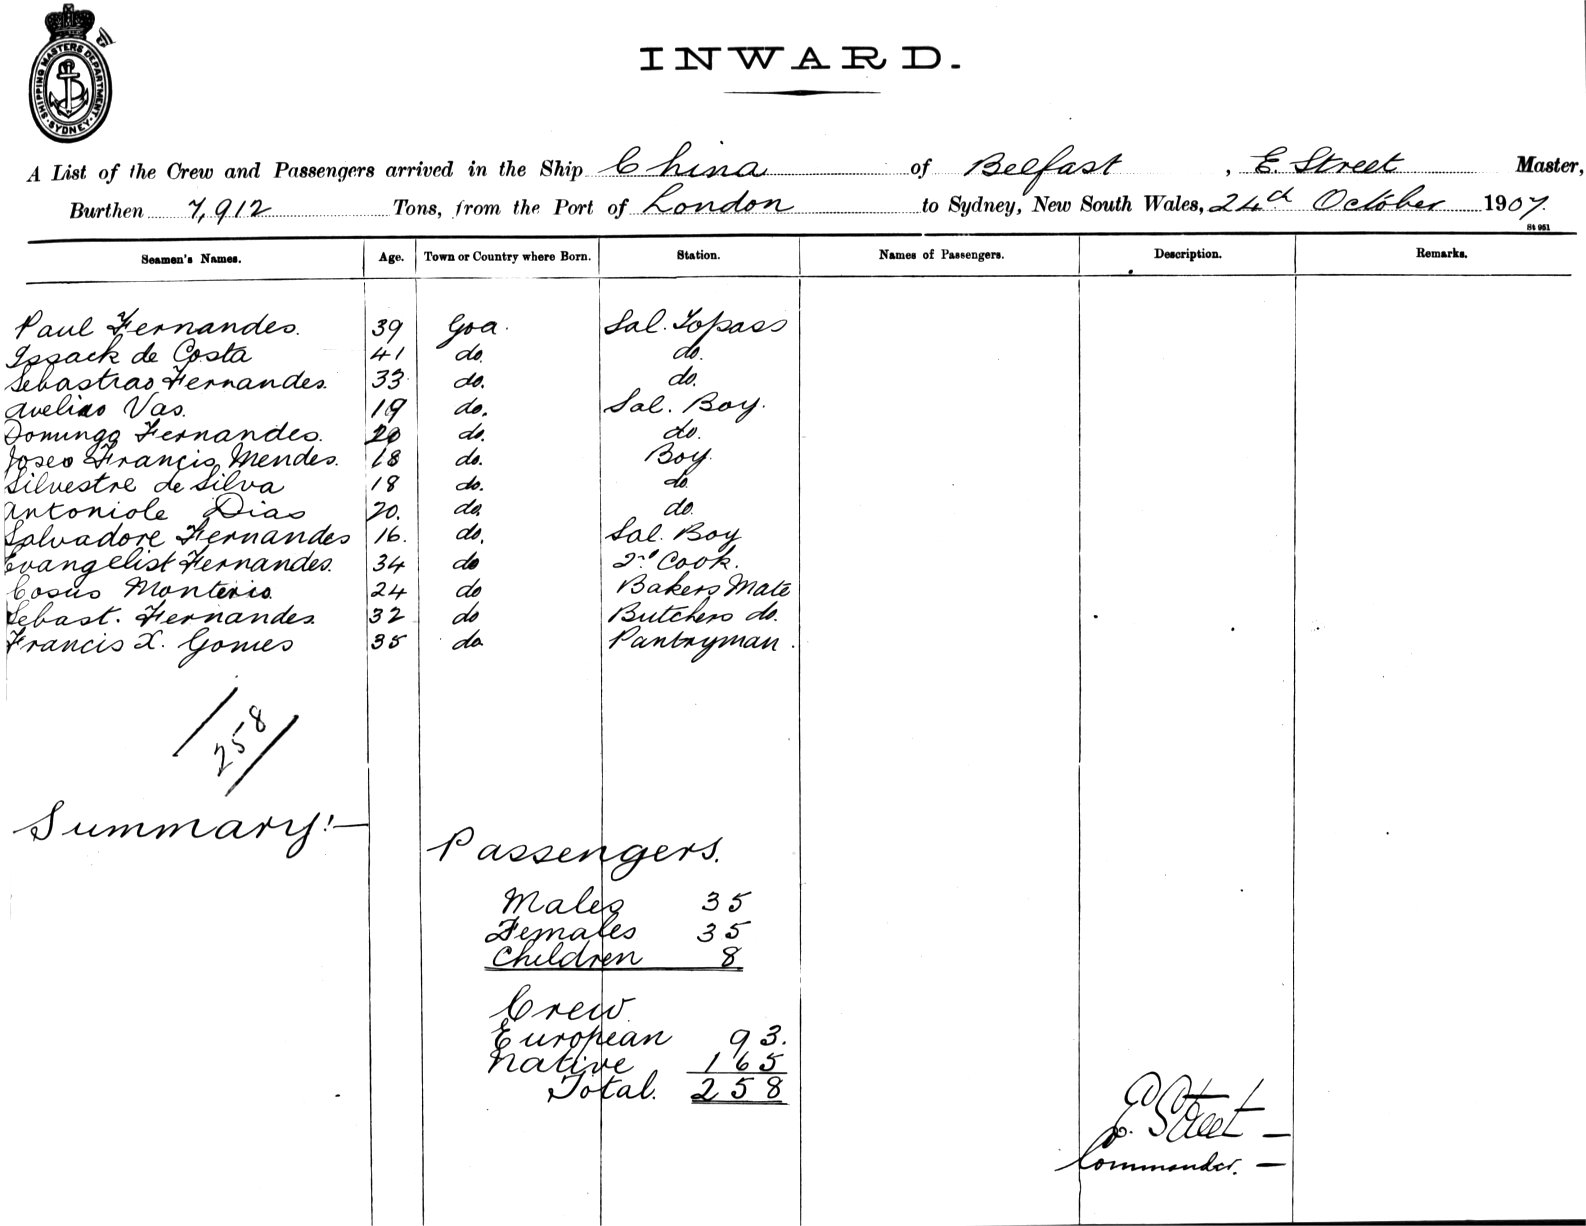 SHIPPING MASTERS DEPARTMENT. SYDNEY.
INWARD.
A List of the Crew and Passengers arrived in the Ship China of Belfast, E. Street Master,
Burthen 7,912 Tons, from the Port of London to Sydney, New South Wales, 24th October 1907.
St 951
Seamen's Names. Age. Town or Country where Born. Station. Names of Passengers. Description. Remarks.
Paul Fernandes. 39 Goa. Sal. Topass
Issack de Costa 41 do. do.
Sebastiao Fernandes. 33 do. do.
Avelino Vas. 19 do. Sal. Boy.
Domingo Fernandes. 20 do. do.
Joseo Francis Mendes. 18 do. Boy.
Silvestre de Silva 18 do. do
Antoniole Dias 20. do. do.
Salvadore Fernandes 16. do. Sal. Boy
Evangelist Fernandes. 34 do 2nd Cook.
Cosus Monterio 24 do Bakers Mate
Sebast. Fernandes. 32 do Butchers do.
Francis X. Gomes 35 do Pantryman.
258
Summary:-
Passengers.
Males 35
Females 35
Children 8
Crew
European 93.
Native 165
Total. 258
E. Street
Commander.